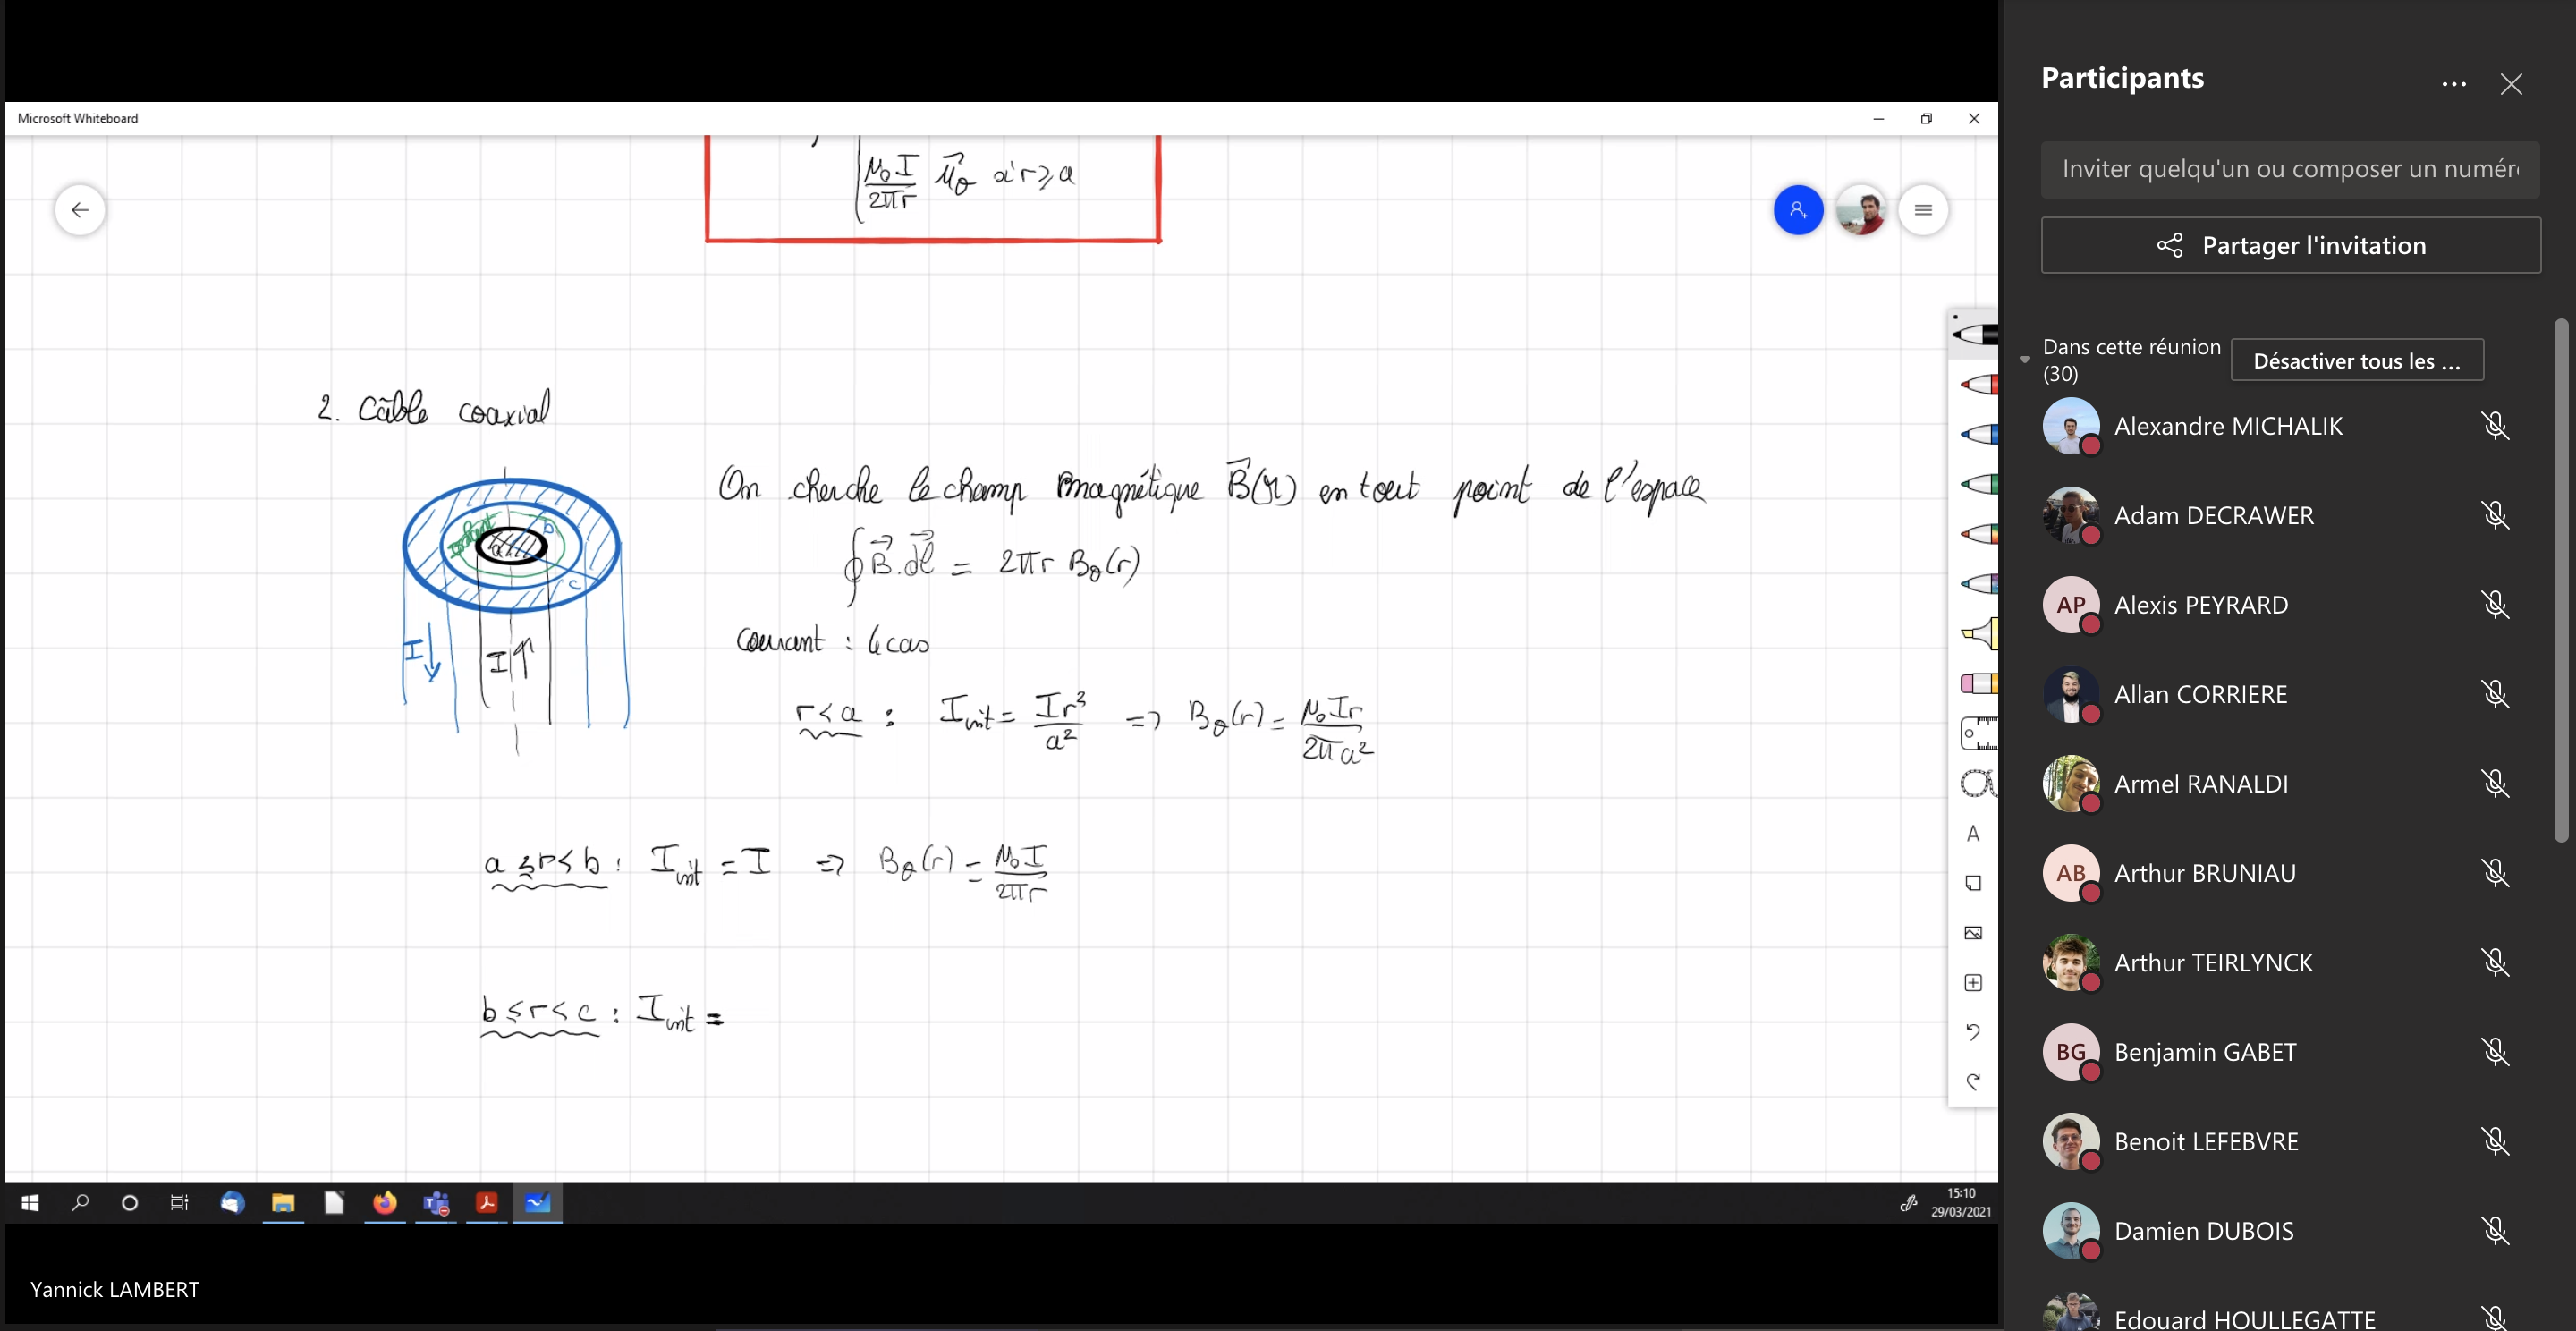 Microsoft Whiteboard
μ₀I/2πr u⃗θ si r ≥ a
2. Câble coaxial
isolant
a
b
c
I↓
I↑
On cherche le champ magnétique B⃗(r) en tout point de l'espace
∮B⃗.dl⃗ = 2πr Bθ(r)
courant : 4 cas
r<a : Iint = Ir²/a² => Bθ(r) = μ₀Ir/2πa²
a ≤ r < b : Iint = I => Bθ(r) = μ₀I/2πr
b ≤ r < c : Iint =
A
15:10
29/03/2021
Yannick LAMBERT
Participants
Inviter quelqu'un ou composer un numér
Partager l'invitation
Dans cette réunion
(30)
Désactiver tous les ...
Alexandre MICHALIK
Adam DECRAWER
AP Alexis PEYRARD
Allan CORRIERE
Armel RANALDI
AB Arthur BRUNIAU
Arthur TEIRLYNCK
BG Benjamin GABET
Benoit LEFEBVRE
Damien DUBOIS
Edouard HOULLEGATTE